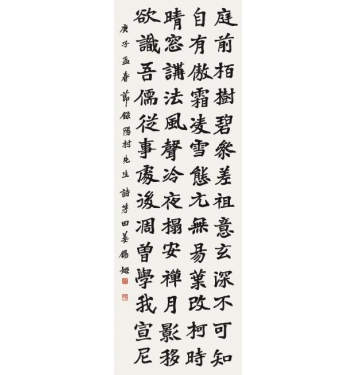 庭前栢樹碧參差祖意玄深不可知
自有傲霜凌雪態元無易葉改柯時
晴窓講法風聲冷夜榻安禪月影移
欲識吾儒從事處後凋曾學我宣尼
庚子孟春節錄陽村先生詩芽田姜錫姬